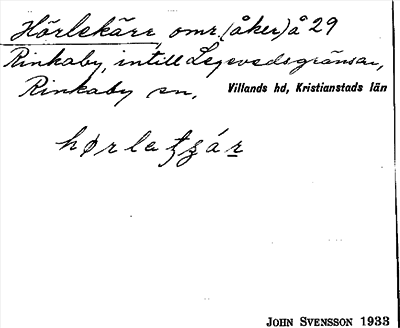 Hörlekärr, omr. (åker) å 29
Rinkaby, intill Legevedsgränsen,
Rinkaby sn. Villands hd, Kristianstads län
JOHN SVENSSON 1933